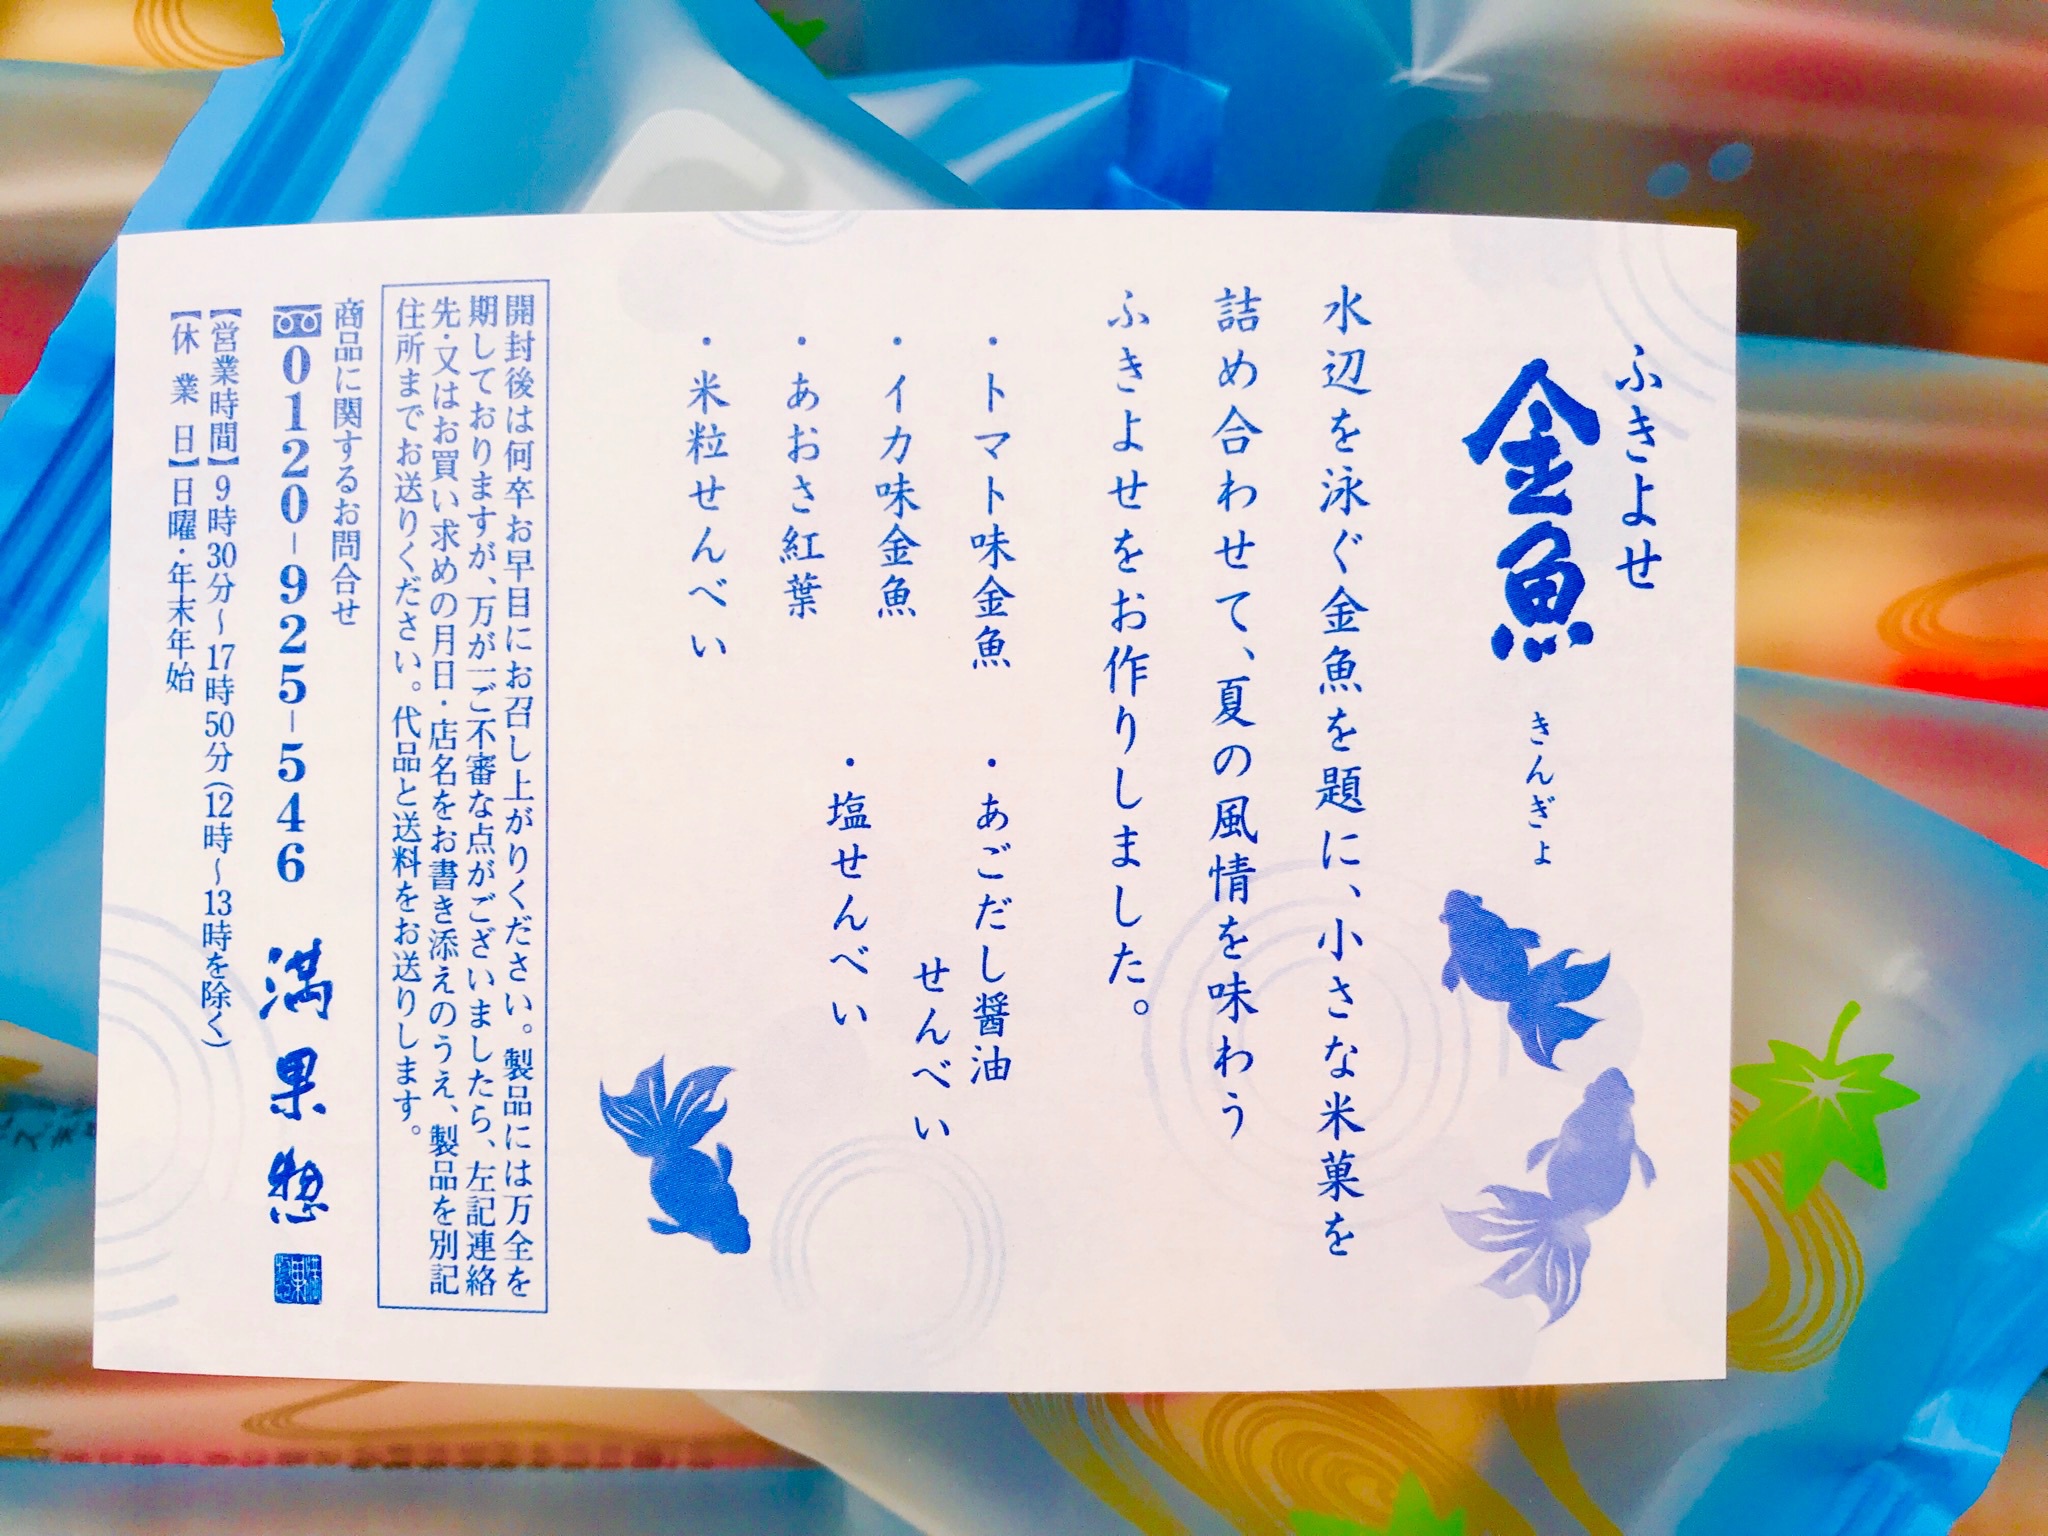 ふきよせ
金魚 きんぎょ
水辺を泳ぐ金魚を題に、小さな米菓を
詰め合わせて、夏の風情を味わう
ふきよせをお作りしました。
・トマト味金魚
・イカ味金魚
・あおさ紅葉
・米粒せんべい
・あごだし醤油
せんべい
・塩せんべい
開封後は何卒お早目にお召し上がりください。製品には万全を
期しておりますが、万が一ご不審な点がございましたら、左記連絡
先・又はお買い求めの月日・店名をお書き添えのうえ、製品を別記
住所までお送りください。代品と送料をお送りします。
商品に関するお問合せ
0120-925-546 満果惣
【営業時間】9時30分～17時50分(12時～13時を除く)
【休業日】日曜・年末年始